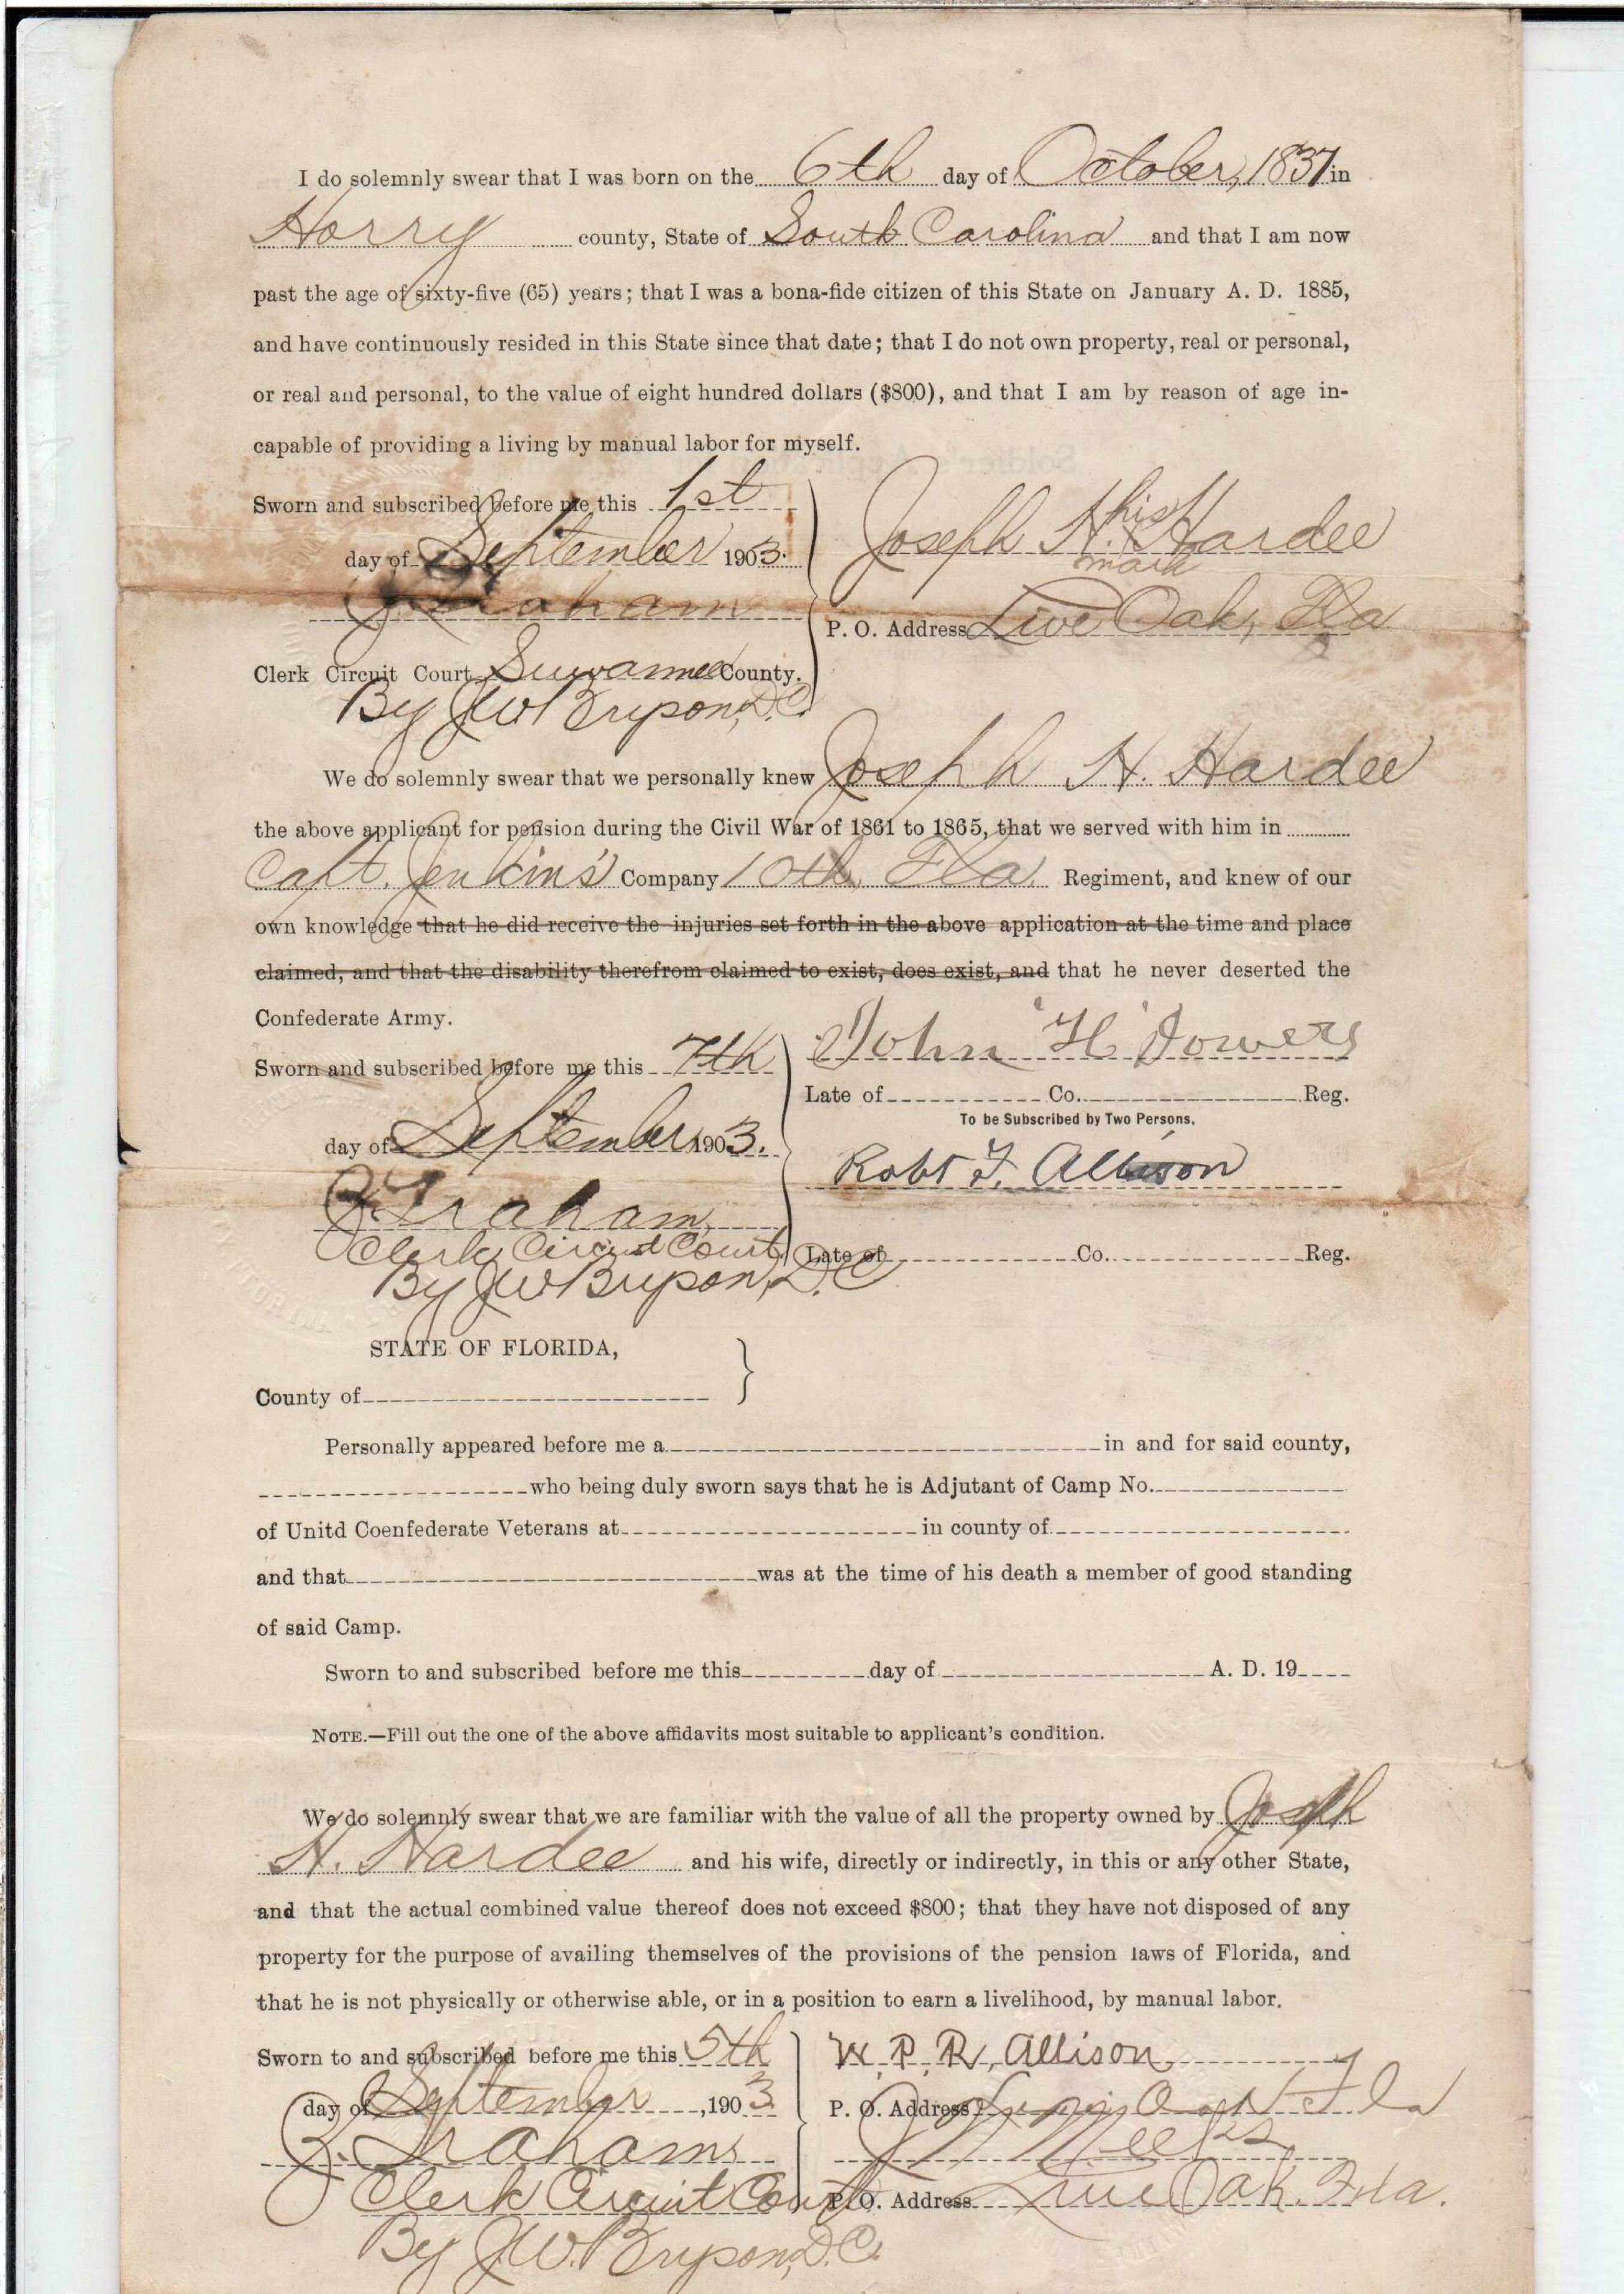 I do solemnly swear that I was born on the 6th day of October, 1837 in
Horry county, State of South Carolina and that I am now
past the age of sixty-five (65) years; that I was a bona-fide citizen of this State on January A. D. 1885,
and have continuously resided in this State since that date; that I do not own property, real or personal,
or real and personal, to the value of eight hundred dollars ($800), and that I am by reason of age in-
capable of providing a living by manual labor for myself.
Sworn and subscribed before me this 1st
day of September 1903.
Graham
Clerk Circuit Court Suwannee County.
By J W Bryson, D.C.
his
Joseph H. X Hardee
mark
P. O. Address Live Oak, Fla
We do solemnly swear that we personally knew Joseph H. Hardee
the above applicant for pension during the Civil War of 1861 to 1865, that we served with him in
Capt. Jenkins' Company 10th Fla. Regiment, and knew of our
own knowledge that he did receive the injuries set forth in the above application at the time and place
claimed, and that the disability therefrom claimed to exist, does exist, and that he never deserted the
Confederate Army.
Sworn and subscribed before me this 7th
day of September 1903.
Graham,
Clerk Circuit Court
By J W Bryson, D.C
John H
Late of Co. Reg.
To be Subscribed by Two Persons.
Robt F. Allison
Late of Co. Reg.
STATE OF FLORIDA,
County of
Personally appeared before me a in and for said county,
who being duly sworn says that he is Adjutant of Camp No.
of Unitd Coenfederate Veterans at in county of
and that was at the time of his death a member of good standing
of said Camp.
Sworn to and subscribed before me this day of A. D. 19
NOTE.—Fill out the one of the above affidavits most suitable to applicant's condition.
We do solemnly swear that we are familiar with the value of all the property owned by Joseph
H. Hardee and his wife, directly or indirectly, in this or any other State,
and that the actual combined value thereof does not exceed $800; that they have not disposed of any
property for the purpose of availing themselves of the provisions of the pension laws of Florida, and
that he is not physically or otherwise able, or in a position to earn a livelihood, by manual labor.
Sworn to and subscribed before me this 5th
day of September, 1903
Graham
Clerk Circuit Court
By J.W. Bryson, D.C.
W. P. R. Allison
P. O. Address Fla
P. O. Address Live Oak, Fla.